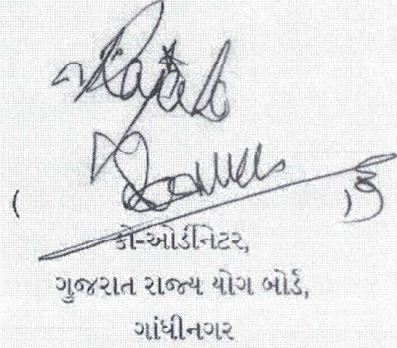 (                    )
કો-ઓર્ડીનેટર,
ગુજરાત રાજ્ય યોગ બોર્ડ,
ગાંધીનગર